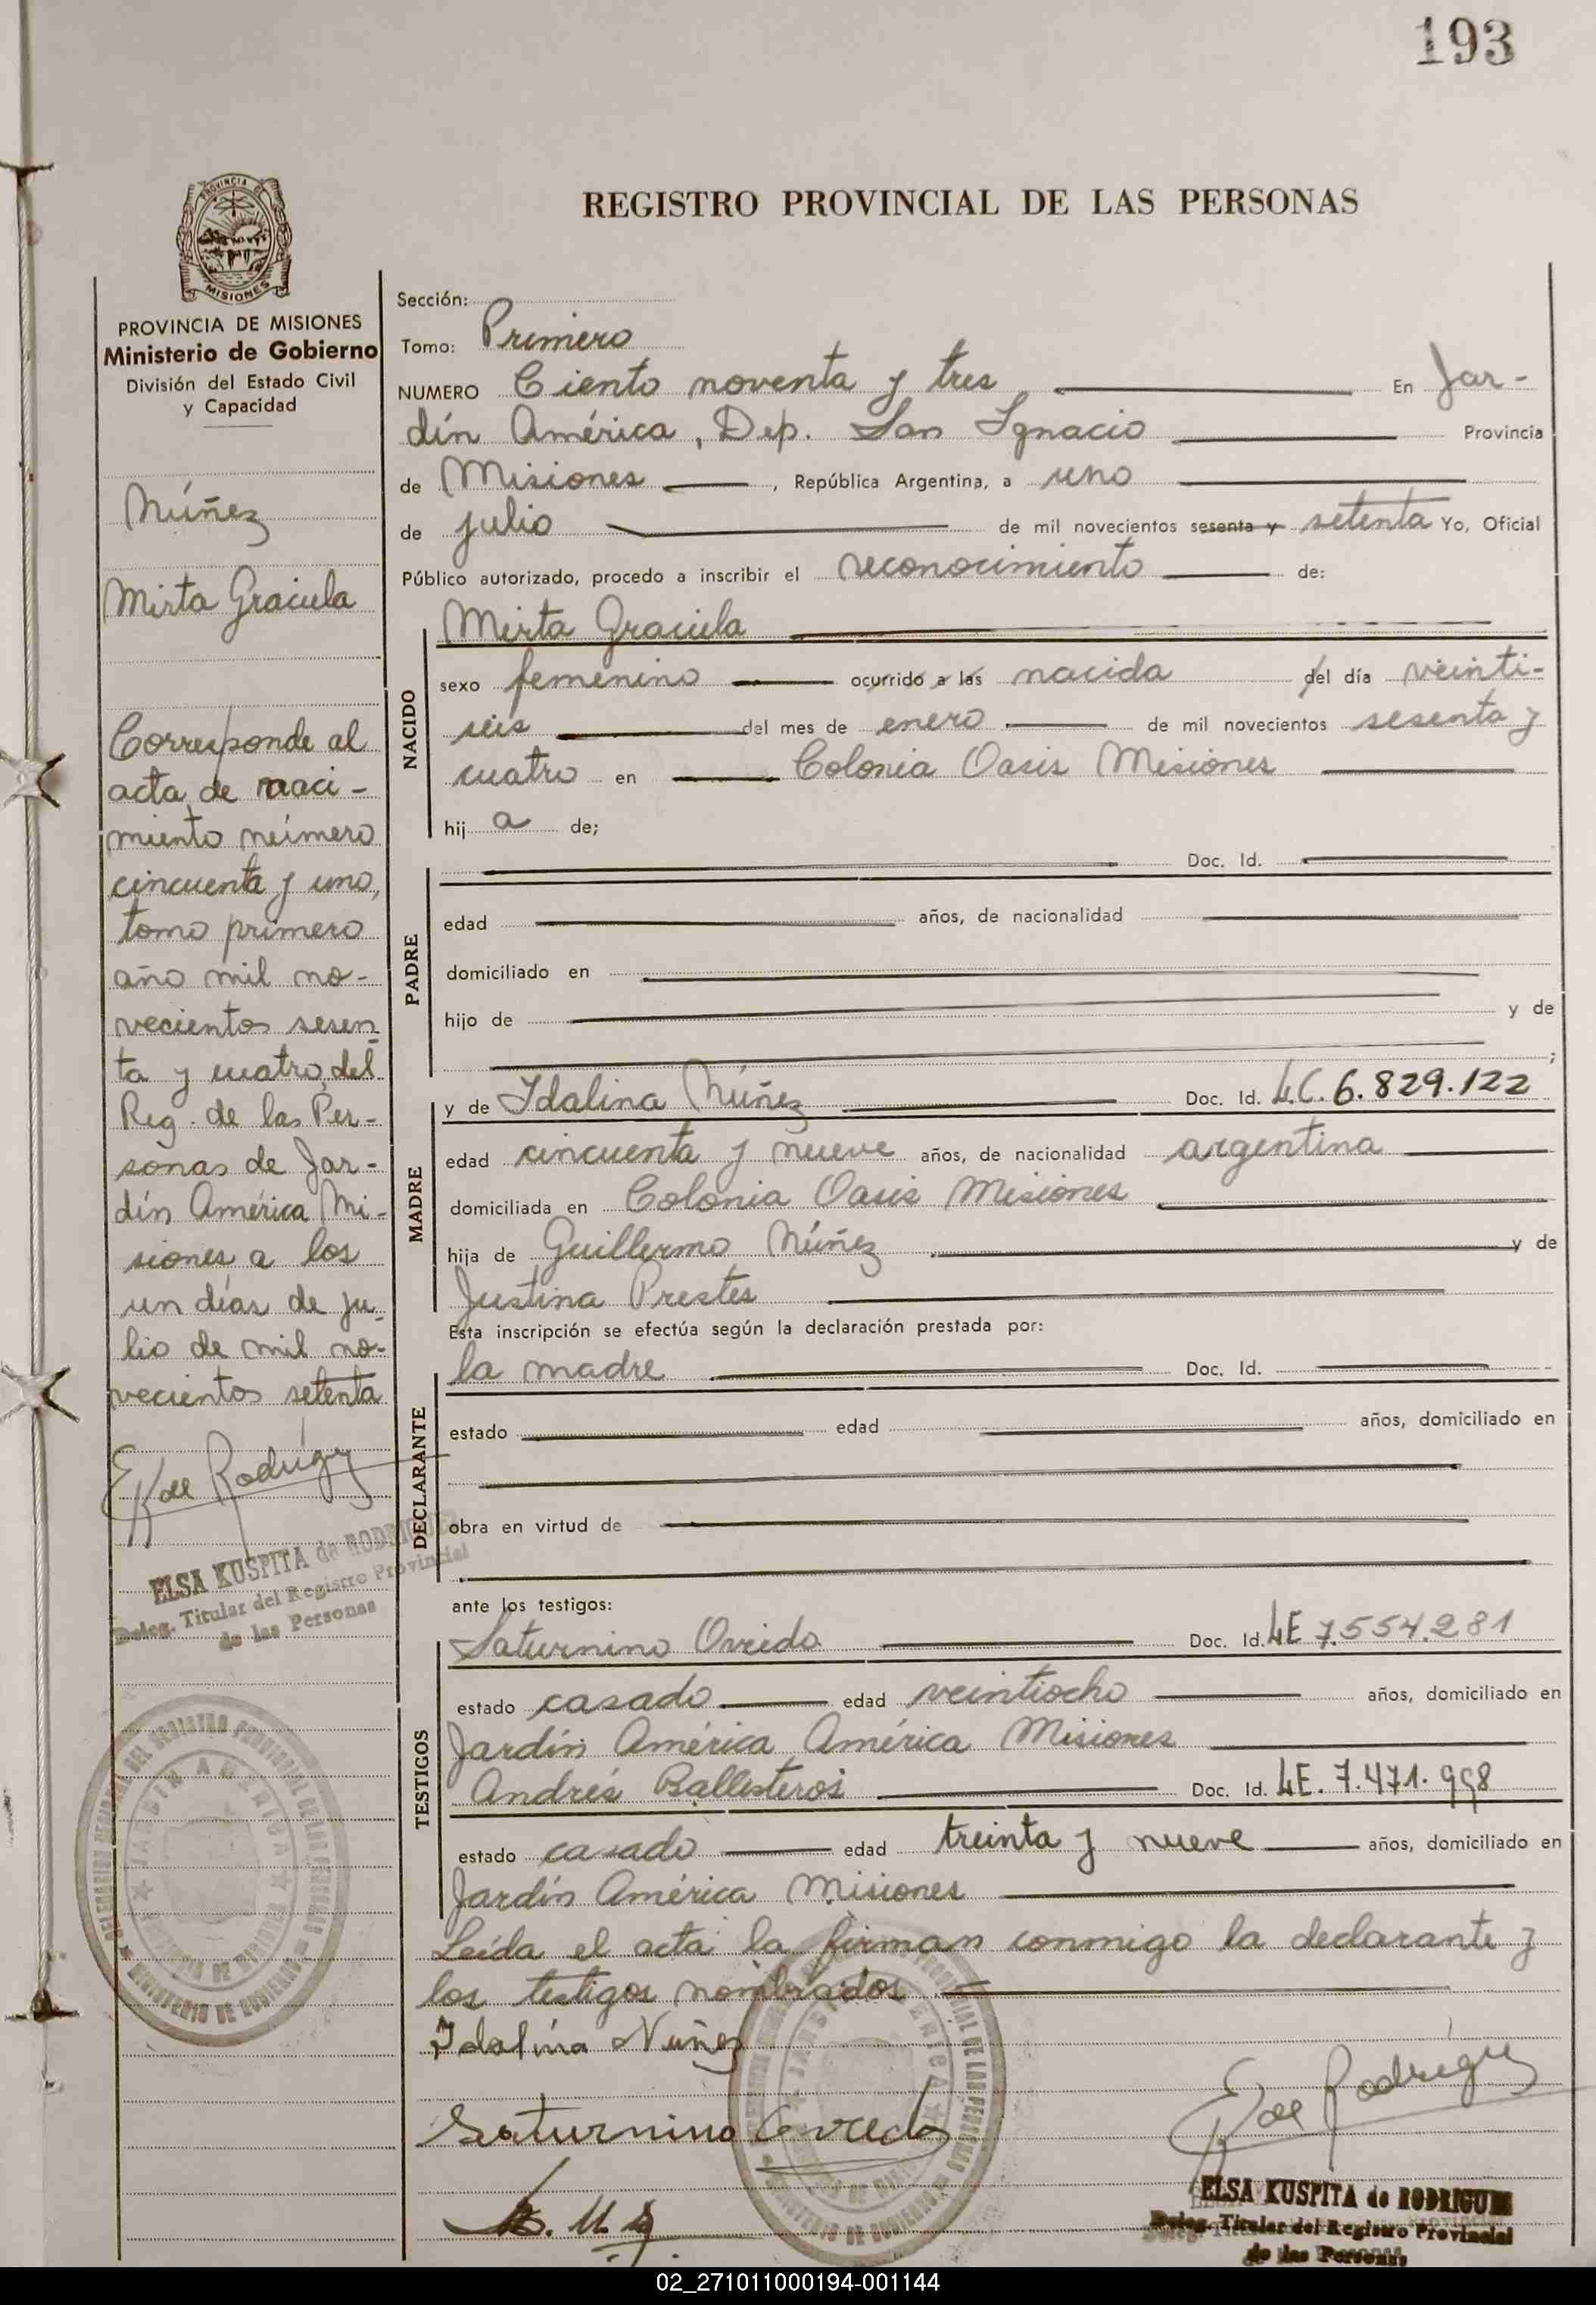 193
PROVINCIA DE
MISIONES
REGISTRO PROVINCIAL DE LAS PERSONAS
PROVINCIA DE MISIONES
Ministerio de Gobierno
División del Estado Civil
y Capacidad
Núñez
Mirta Graciela
Corresponde al
acta de naci-
miento número
cincuenta y uno,
tomo primero
año mil no-
vecientos sesen
ta y cuatro, del
Reg. de las Per-
sonas de Jar-
dín América Mi-
siones a los
un días de ju
lio de mil no-
vecientos setenta
E K de Rodríguez
ELSA KUSPITA de RODRIGUEZ
Deleg. Titular del Registro Provincial
de las Personas
Sección:
Tomo: Primero
NUMERO Ciento noventa y tres En Jar-
dín América, Dep. San Ignacio Provincia
de Misiones, República Argentina, a uno
de julio de mil novecientos sesenta y setenta Yo, Oficial
Público autorizado, procedo a inscribir el reconocimiento de:
NACIDO
Mirta Graciela
sexo femenino ocurrido a las nacida del día veinti-
séis del mes de enero de mil novecientos sesenta y
cuatro en Colonia Oasis Misiones
hij a de;
PADRE
Doc. Id.
edad años, de nacionalidad
domiciliado en
hijo de y de
;
MADRE
y de Idalina Núñez Doc. Id. L.C. 6.829.122
edad cincuenta y nueve años, de nacionalidad argentina
domiciliada en Colonia Oasis Misiones
hija de Guillermo Núñez y de
Justina Prestes
Esta inscripción se efectúa según la declaración prestada por:
DECLARANTE
la madre Doc. Id.
estado edad años, domiciliado en
obra en virtud de
ante los testigos:
TESTIGOS
Saturnino Oviedo Doc. Id. LE 7.554.281
estado casado edad veintiocho años, domiciliado en
Jardín América América Misiones
Andrés Ballesteros Doc. Id. LE. 7.471.998
estado casado edad treinta y nueve años, domiciliado en
Jardín América Misiones
Leída el acta la firman conmigo la declarante y
los testigos nombrados
Idalina Nuñez
Saturnino Oviedo
E K de Rodríguez
ELSA KUSPITA de RODRIGUEZ
Deleg. Titular del Registro Provincial
de las Personas
JARDIN AMERICA
MINISTERIO DE GOBIERNO
02_271011000194-001144